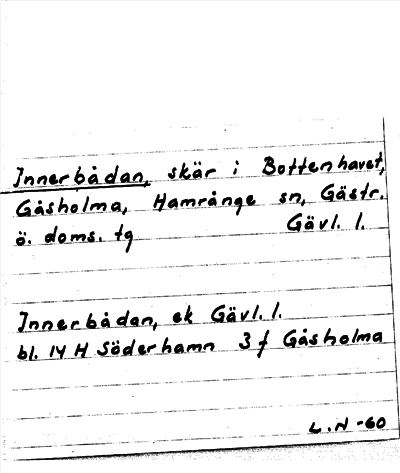 Innerbådan, skär i Bottenhavet,
Gåsholma, Hamrånge sn, Gästr.
ö. doms. tg Gävl. l.
Innerbådan, ek Gävl. l.
bl. 14 H Söderhamn 3 f Gåsholma
L.N -60